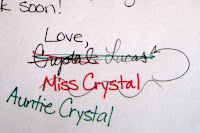 k soon!
Love,
Crystal Lucas
Miss Crystal
Auntie Crystal